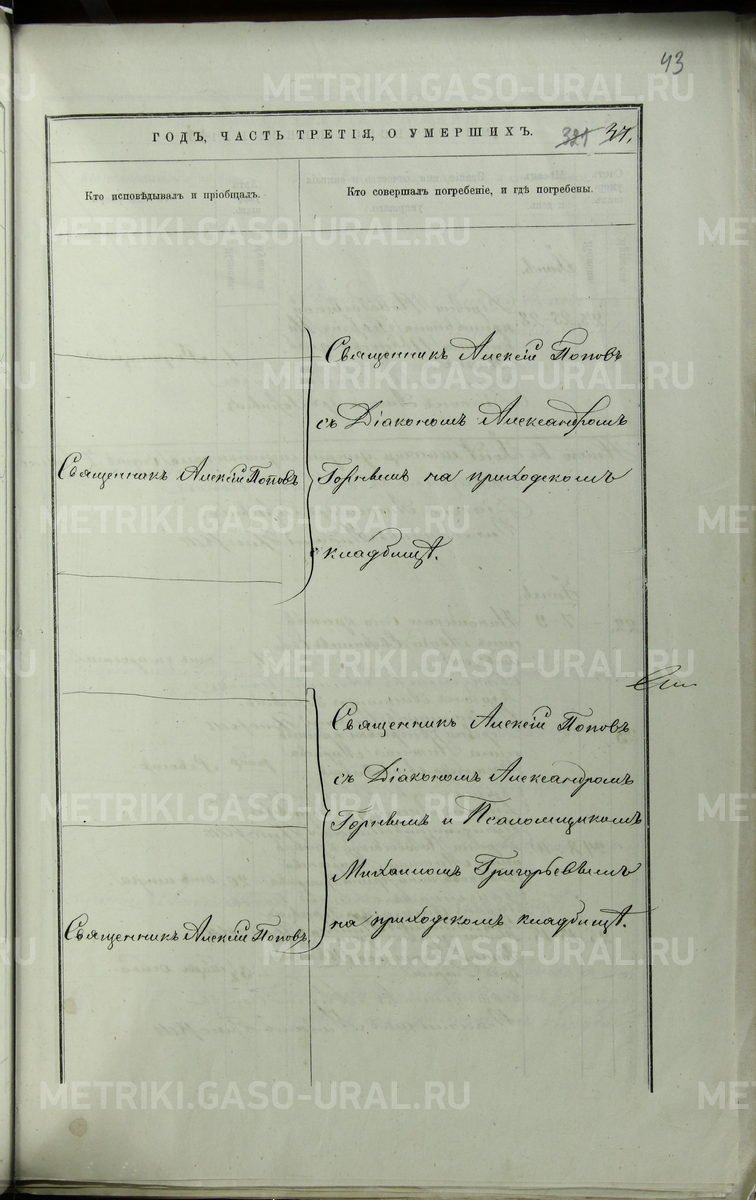 43
ГОДЪ, ЧАСТЬ ТРЕТІЯ, О УМЕРШИХЪ.
37.
Кто исповѣдывалъ и пріобщалъ.
Кто совершалъ погребеніе, и гдѣ погребены.
Священникъ Алексій Поповъ
Священникъ Алексій Поповъ
съ Діакономъ Александромъ
на приходскомъ
кладбищѣ.
Священникъ Алексій Поповъ
Священникъ Алексій Поповъ
съ Діакономъ Александромъ
и Псаломщикомъ
Михаиломъ Григорьевымъ
на приходскомъ кладбищѣ.
METRIKI.GASO-URAL.RU